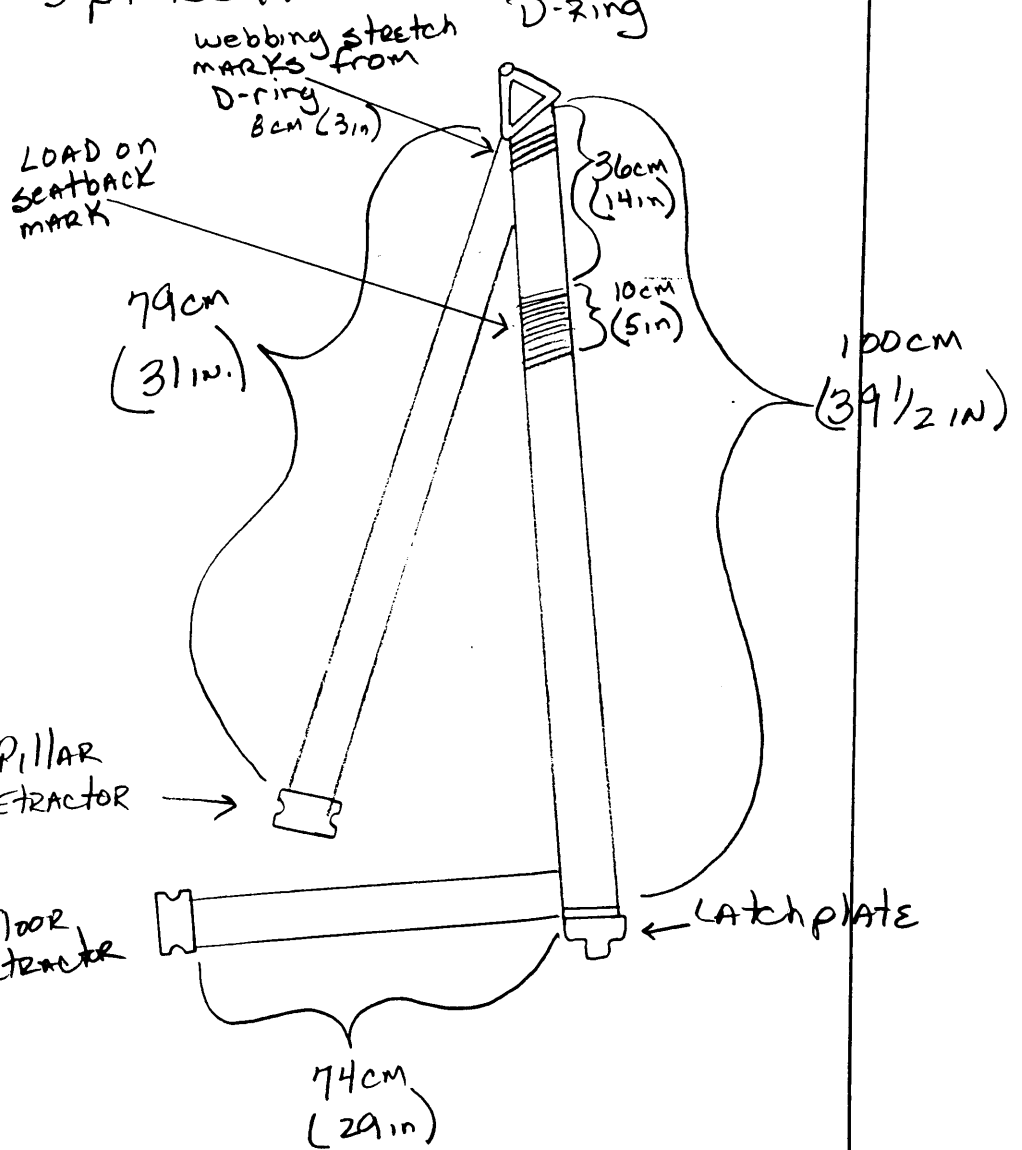 D-Ring
webbing stretch
MARKS from
D-ring
8cm (3in)
LOAD on
seatback
MARK
36cm
(14in)
10cm
(5in)
79cm
(31 IN.)
100cm
(39 1/2 IN)
Pillar
ETRACTOR
LAtchplatE
OOR
TRACTOR
74cm
(29in)